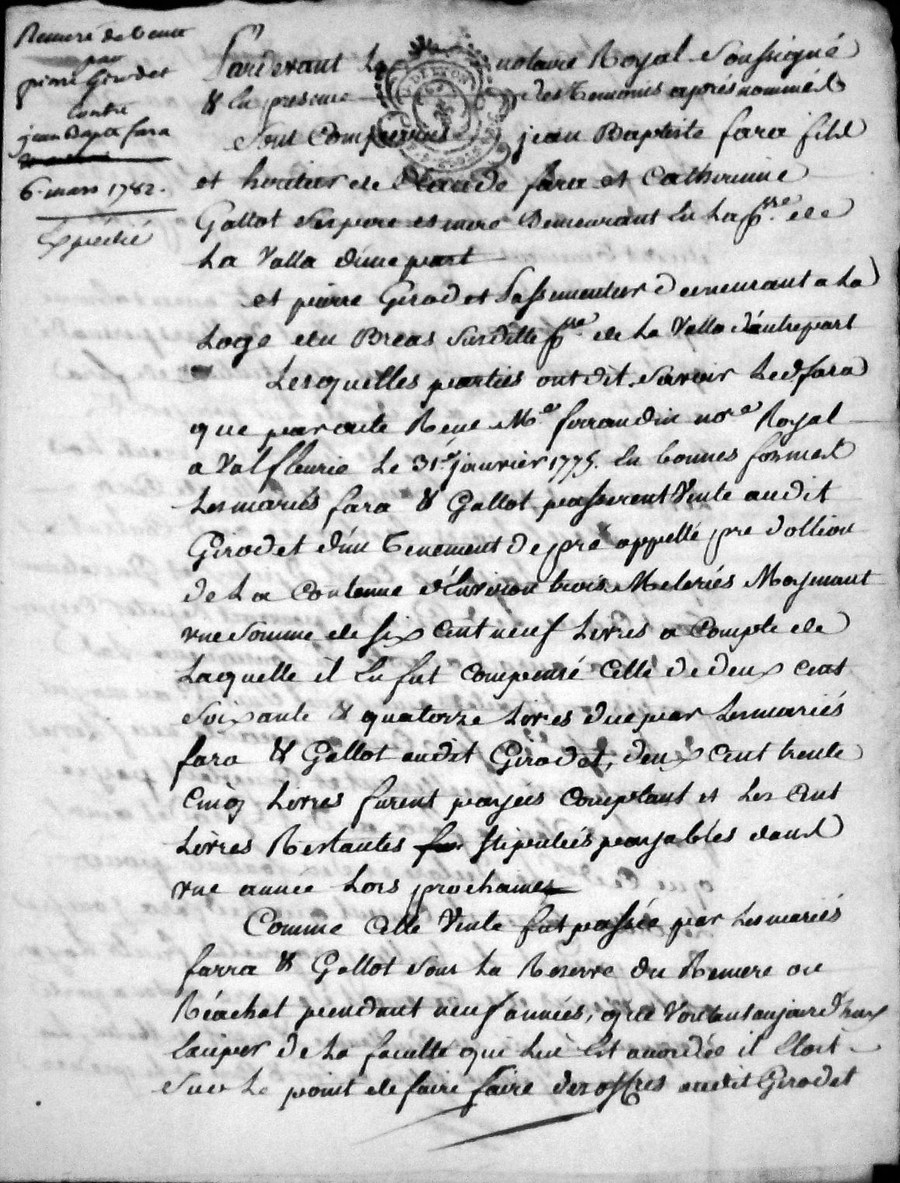 Remeré de vente
par
pierre Girodet
contre
jean Bapte fara
6. mars 1782.
Expédié
Pardevant Le notaire Royal soussigné
& En presence des temoins aprés nommés
sont comparus jean Baptiste fara fils
et heritier de Claude fara et Catherinne
Gallot ses pere et mere demeurant En La psse. de
La Valla d'une part
et pierre Girodet Passementier demeurant a La
Loge du Breas susditte psse. de La Valla d'autre part
Lesquelles parties ont dit savoir Led fara
que par acte Recu Me. farrandin nore. Royal
a Valfleurie Le 31e. janvier 1775. En bonnes formes
Les mariés fara & Gallot passerent Vente audit
Girodet d'un tenement de pré appellé pre d'ollion
de La Contenue d'Environ trois Meterés Moyenant
une somme de six cent neuf Livres a Compte de
Laquelle il En fut compensé Celle de deux cens
soixante & quatorze Livres due par Les mariés
fara & Gallot audit Girodet, deux cent trente
cinq Livres furent payees comptant et Les cent
Livres Restantes stipulées payables dans
une année Lors prochaine
Comme Cette Vente fut passée par Les mariés
farra & Gallot sous La Reserve du Remere ou
Réachat pendant neuf années, que Voulant aujourd'huy
de La faculté que Lui Est accordée il Etoit
sur Le point de faire faire des offres audit Girodet